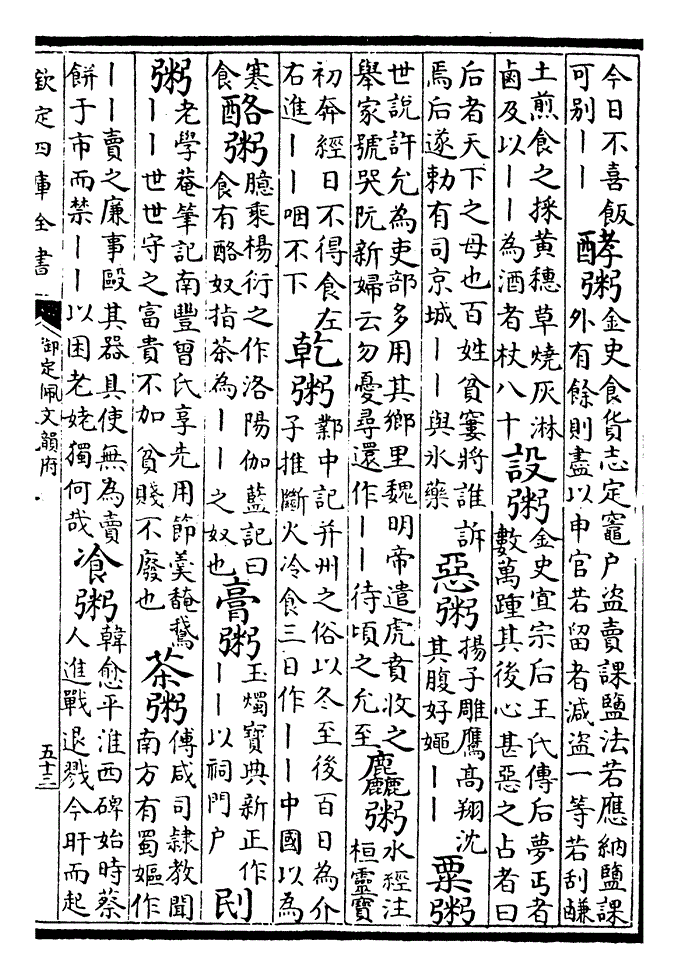 今日不喜飯
可别丨丨
酵粥
金史食貨志定竈户盜賣課鹽法若應納鹽課
外有餘則盡以申官若留者減盜一等若刮鹻
土煎食之採黄穗草燒灰淋
鹵及以丨丨為酒者杖八十
設粥
金史宣宗后王氏傳后夢丐者
數萬踵其後心甚惡之占者曰
后者天下之母也百姓貧窶將誰訴
焉后遂勅有司京城丨丨與氷藥
惡粥
揚子雕鷹高翔沈
其腹好蠅丨丨
粟粥
世說許允為吏部多用其鄉里魏明帝遣虎賁收之
舉家號哭阮新婦云勿憂尋還作丨丨待頃之允至
麤粥
水經注
桓靈寶
初奔經日不得食左
右進丨丨咽不下
乾粥
鄴中記并州之俗以冬至後百日為介
子推斷火冷食三日作丨丨中國以為
寒
食
酪粥
臆乘楊衍之作洛陽伽藍記曰
食有酪奴指茶為丨丨之奴也
膏粥
玉燭寶典新正作
丨丨以祠門户
刡
粥
老學菴筆記南豐曾氏享先用節羹馣鵝
丨丨世世守之富貴不加貧賤不廢也
茶粥
傅咸司隸教聞
南方有蜀嫗作
丨丨賣之廉事毆其器具使無為賣
餅于市而禁丨丨以困老姥獨何哉
飡粥
韓愈平淮西碑始時蔡
人進戰退戮今旰而起
欽定四庫全書
御定佩文韻府
五十三